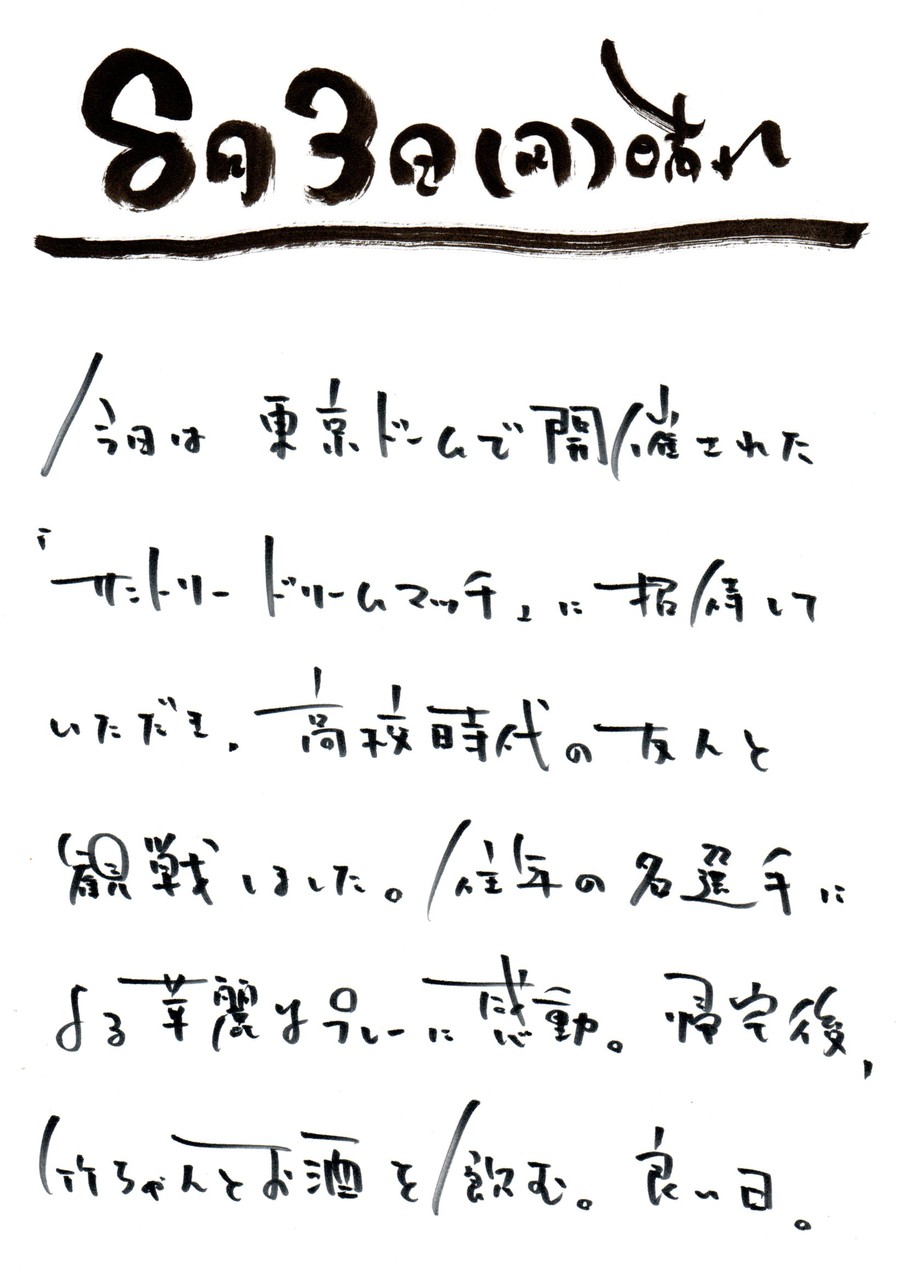 8月3日(月)晴れ
今日は 東京ドームで開催された
「サントリードリームマッチ」に招待して
いただき、高校時代の友人と
観戦しました。往年の名選手に
よる華麗なプレーに感動。帰宅後、
竹ちゃんとお酒を飲む。良い日。